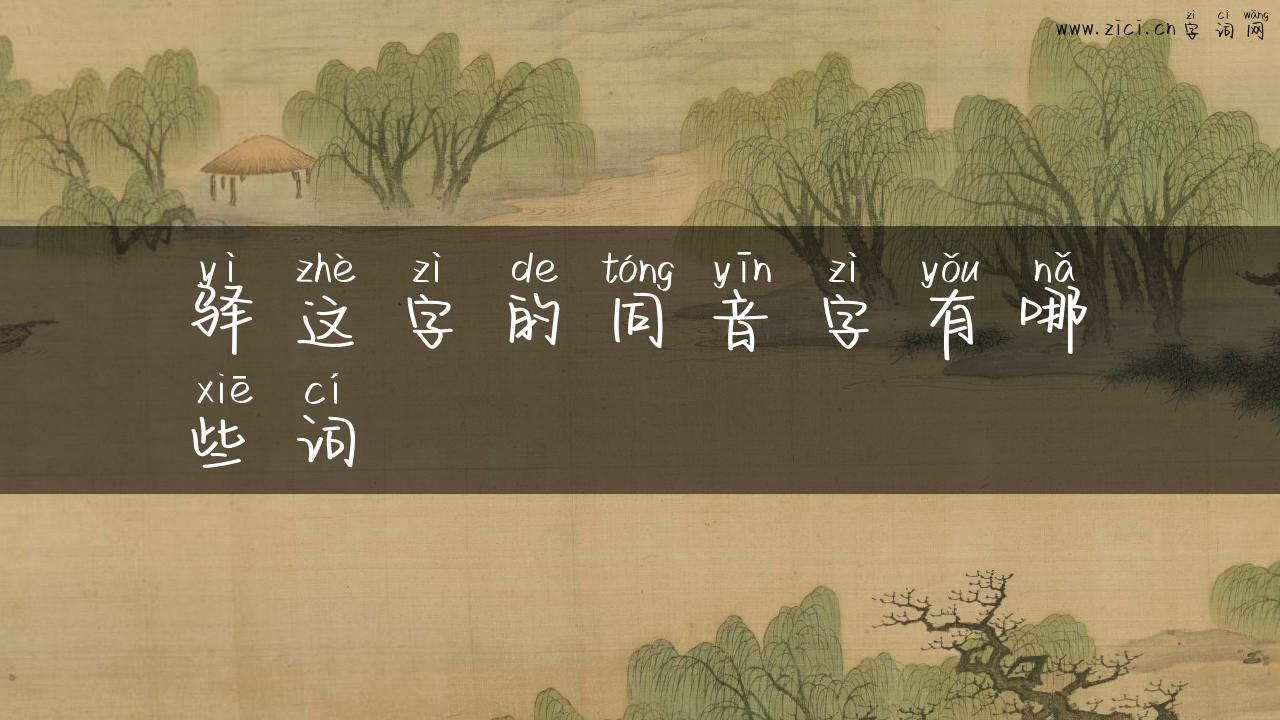 zì cí wǎng
www.zici.cn 字 词 网
yì zhè zì de tóng yīn zì yǒu nǎ
驿 这 字 的 同 音 字 有 哪
xiē cí
些 词